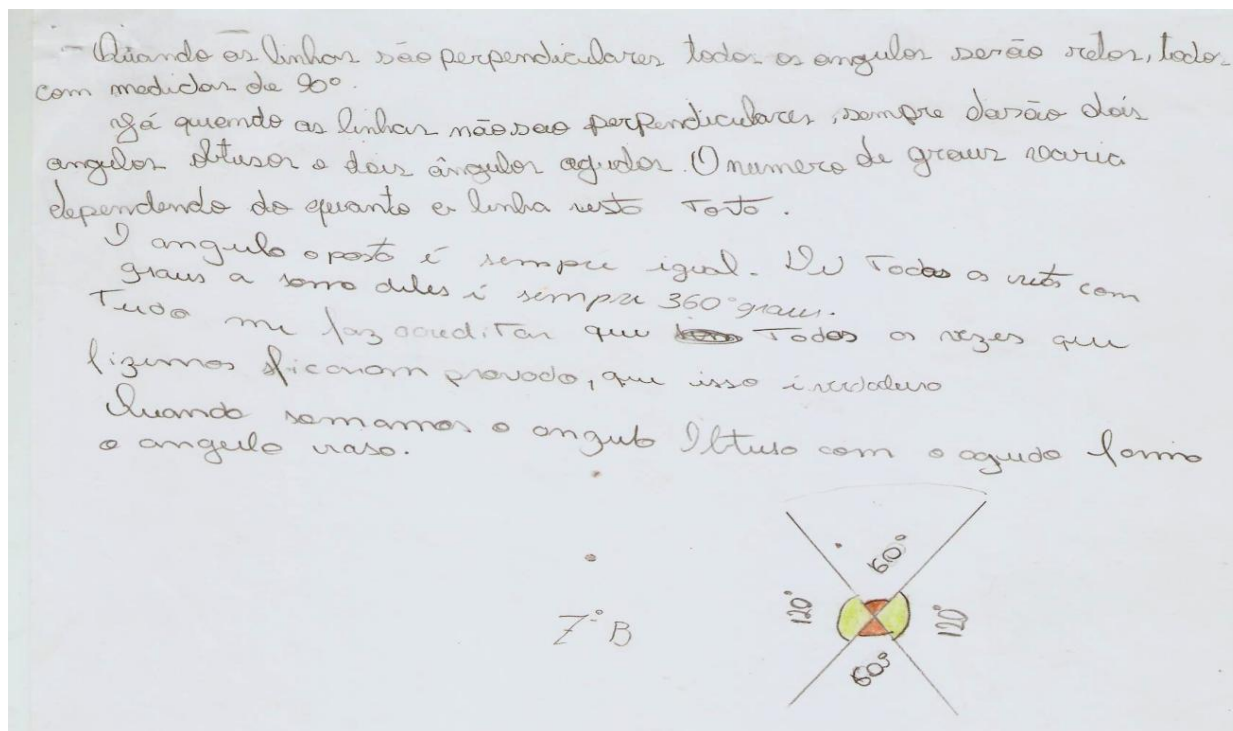 - Quando as linhas são perpendiculares todos os angulos serão retos, todos
com medidas de 90°.
Já quando as linhas não sao perpendiculares, sempre darão dois
angulos obtusos e dois ângulos agudos. O numero de graus varia
dependendo do quanto a linha está torta.
O angulo oposto é sempre igual. De Todas as com
graus a soma deles é sempre 360° graus.
Tudo me faz acreditar que Todas as vezes que
fizemos ficaram provado, que isso é verdadeiro
Quando somamos o angulo Obtuso com o agudo forma
o angulo raso.
60°
120°
120°
60°
7ª B